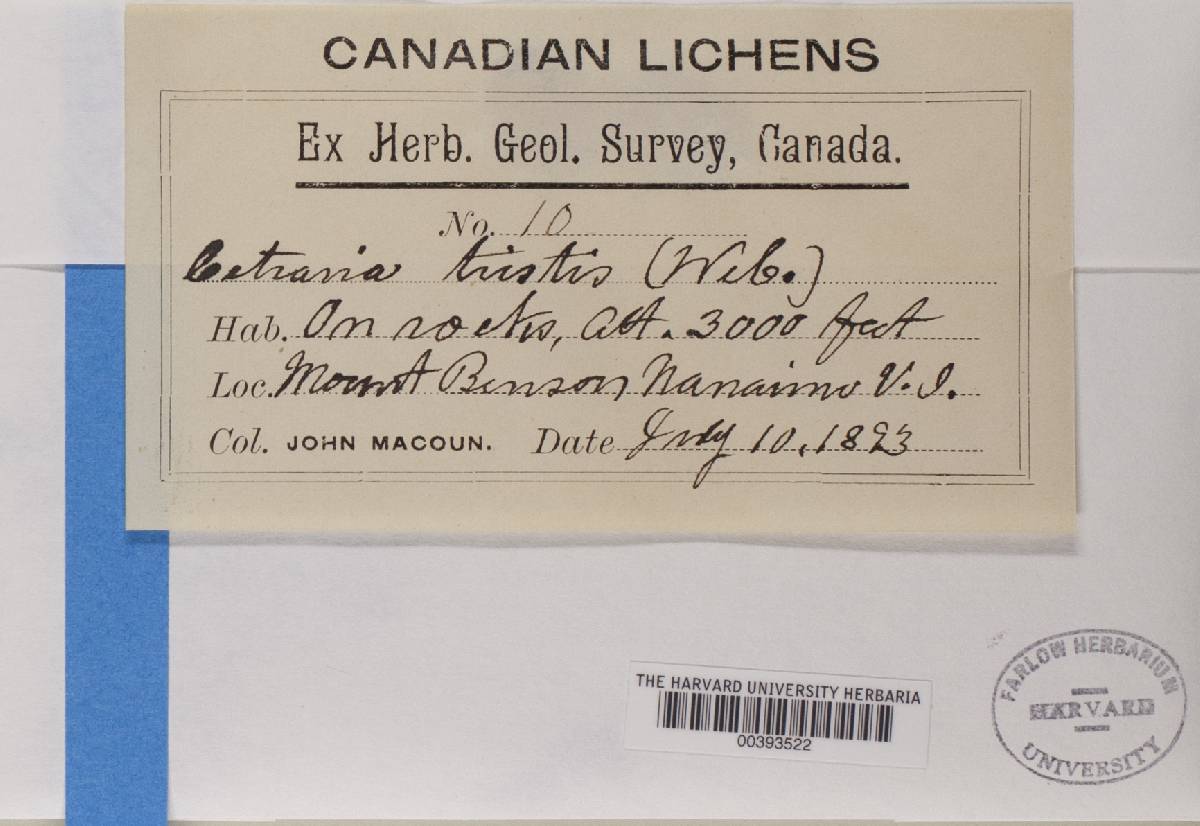 CANADIAN LICHENS
Ex Herb. Geol. Survey, Canada.
No. 10
Cetraria tristis (Web.)
Hab. On rocks, Alt. 3000 feet
Loc. Mount Benson, Nanaimo V. I.
Col. JOHN MACOUN. Date July 10, 1893
THE HARVARD UNIVERSITY HERBARIA
00393522
FARLOW HERBARIUM
HARVARD
UNIVERSITY